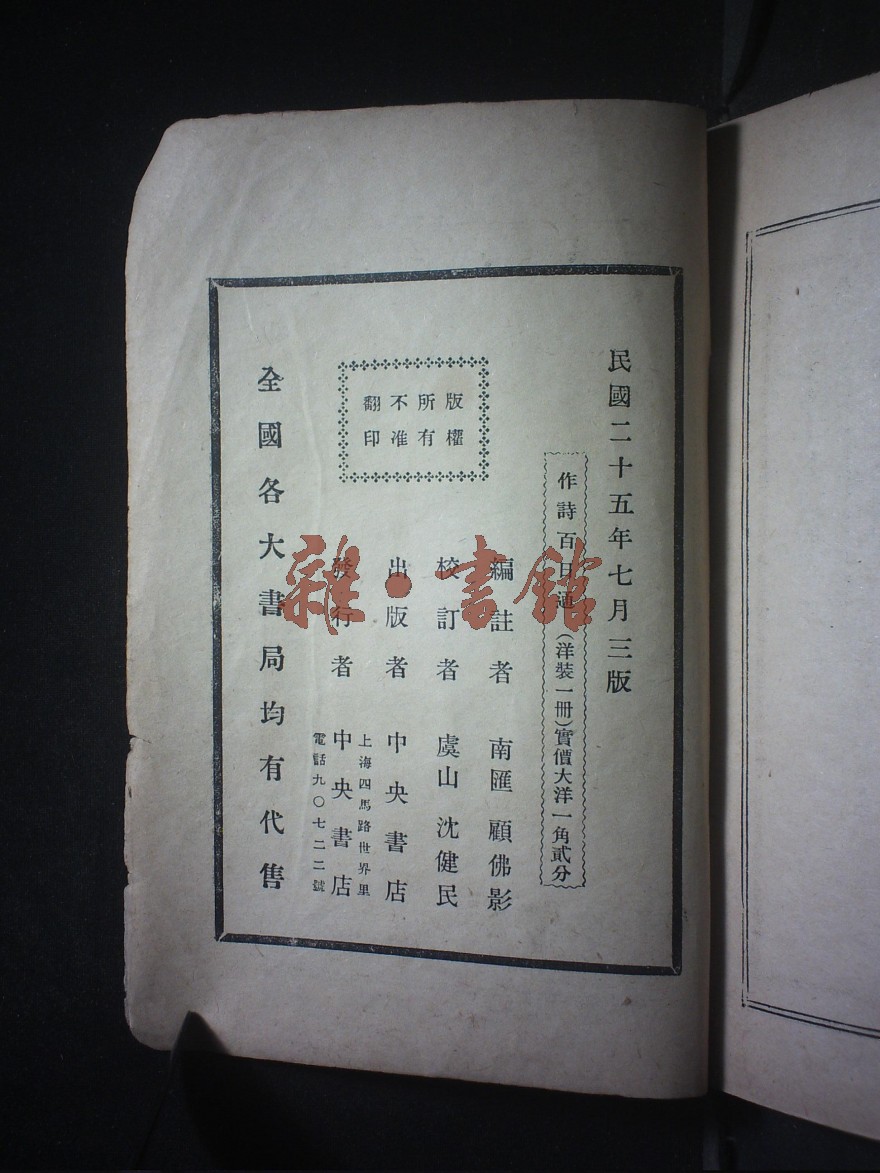 民國二十五年七月三版
作詩百日通（洋裝一冊）實價大洋一角貳分
編註者 南匯 顧佛影
校訂者 虞山 沈健民
出版者 中央書店
上海四馬路世界里
發行者 中央書店
電話九〇七二二號
版權
所有
不准
翻印
全國各大書局均有代售
雜·書館